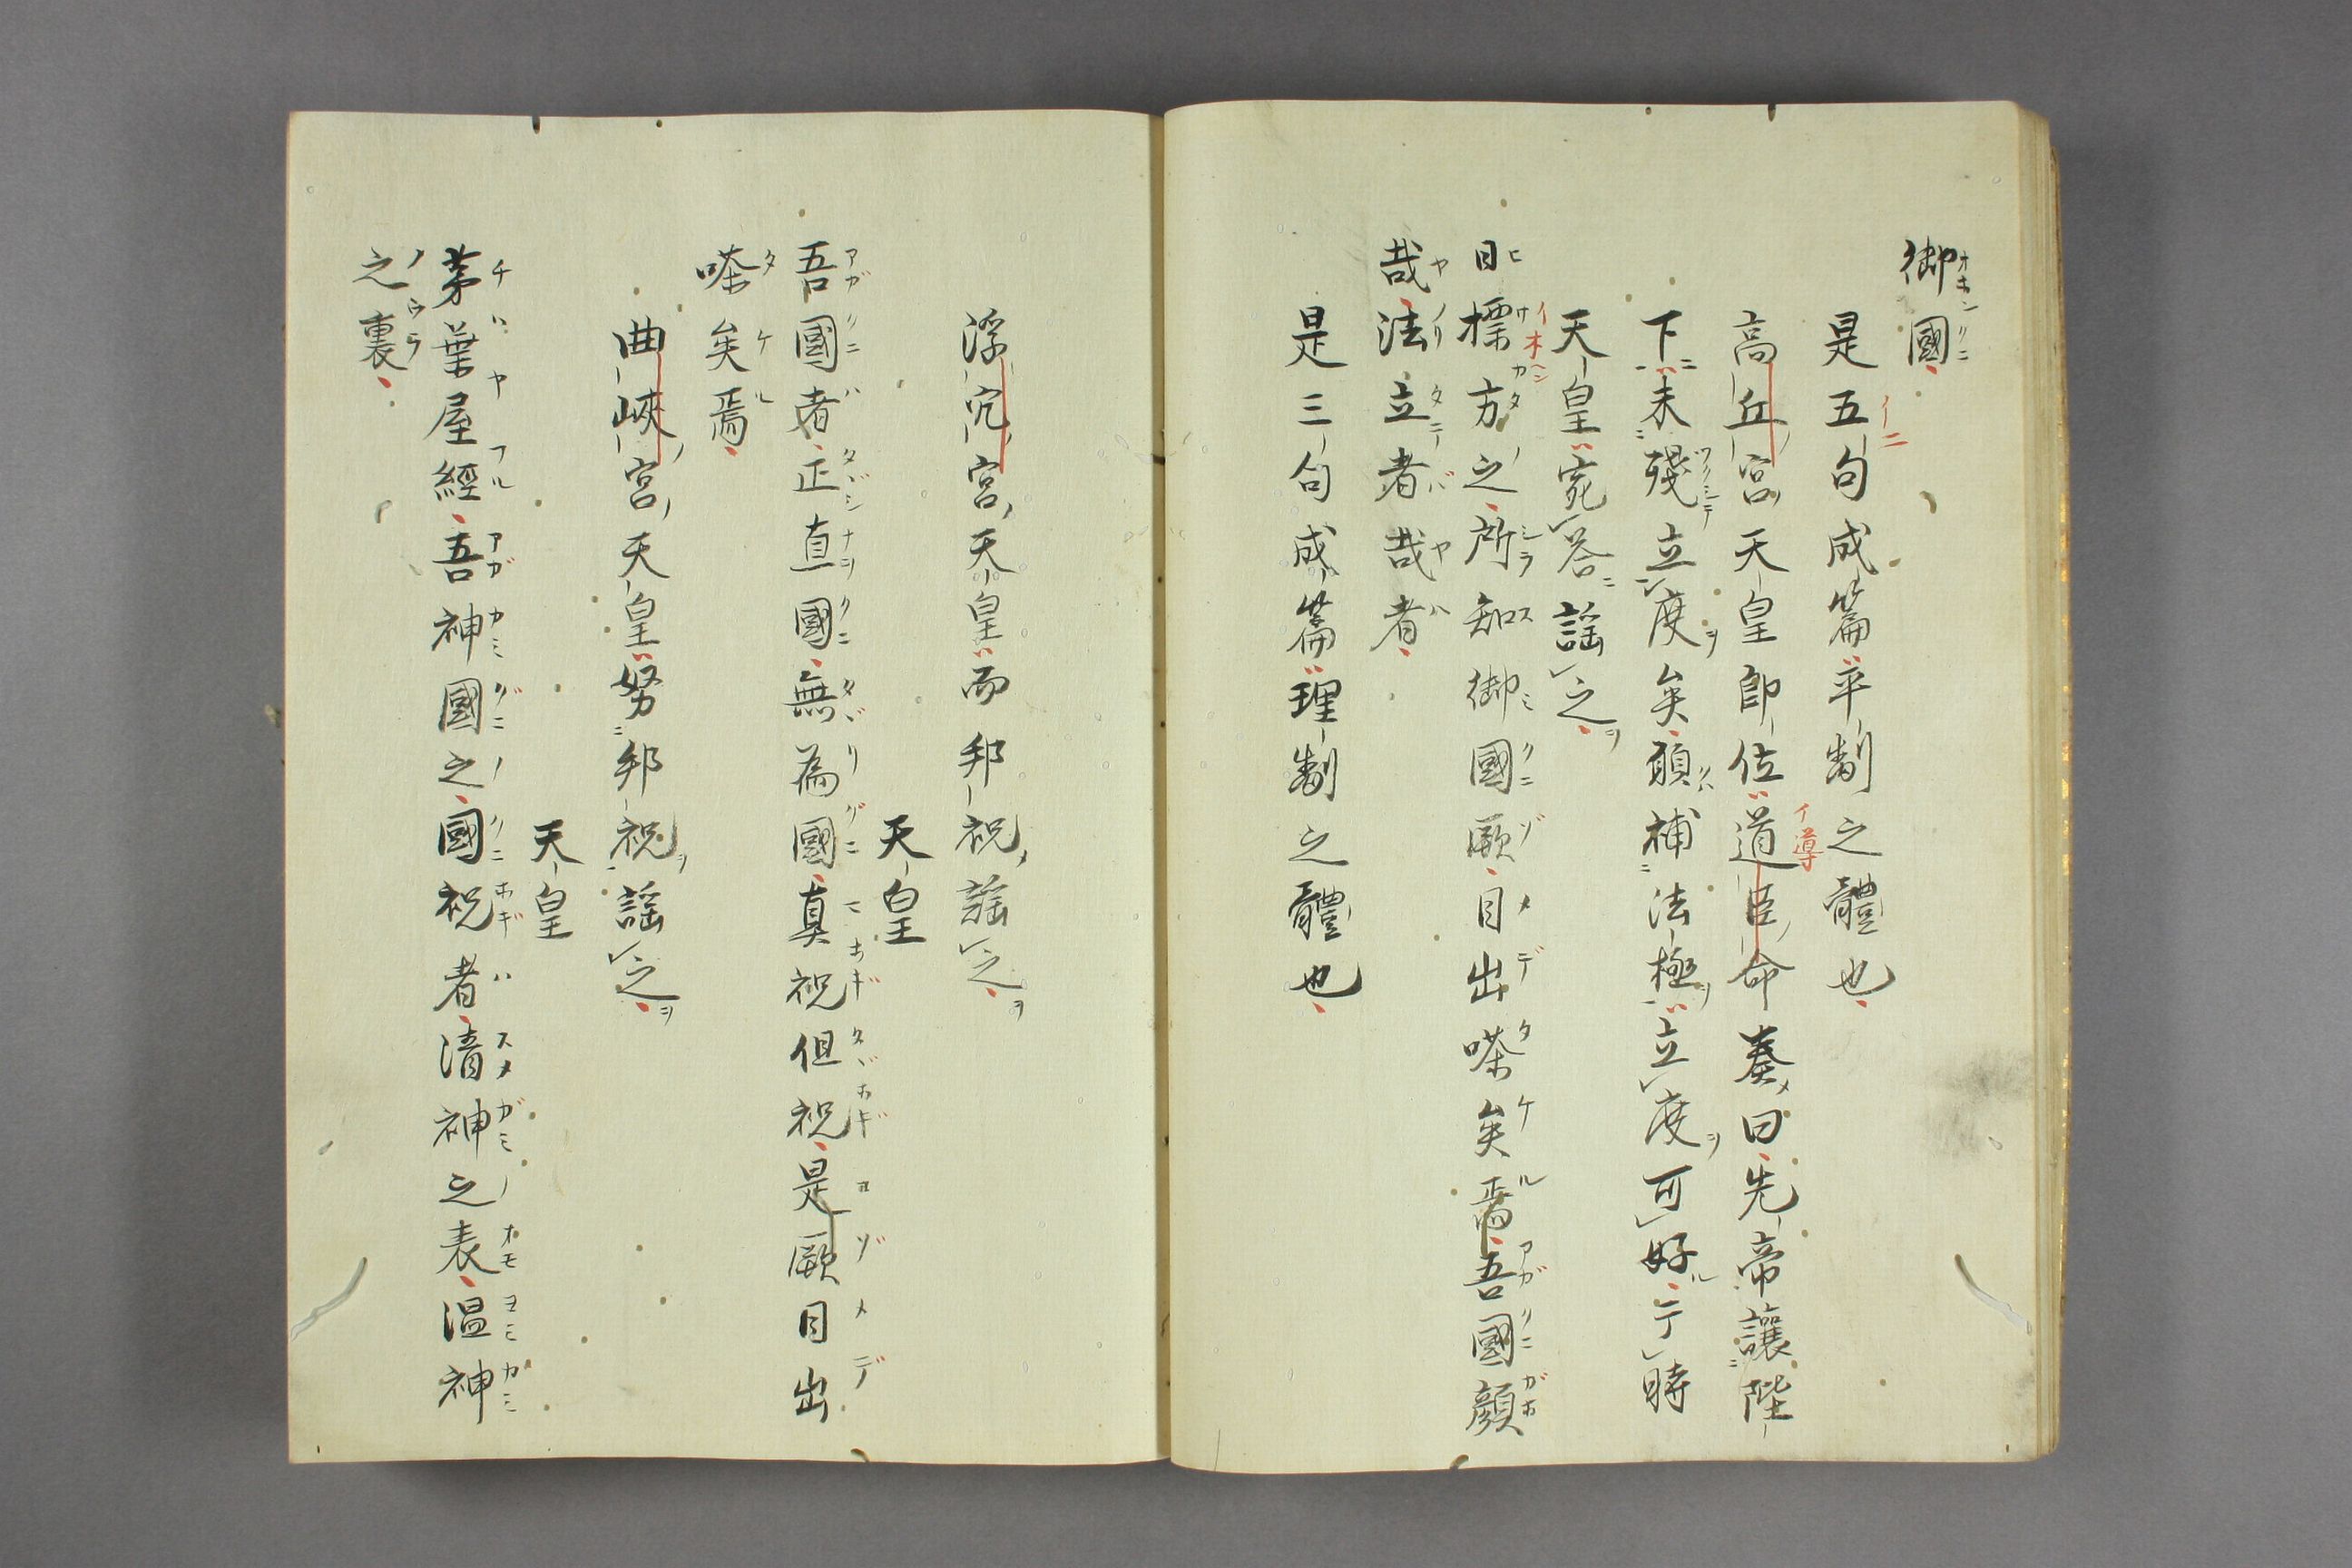 御國
是五句成篇平制之體也
高丘宮天皇即位道臣命奏曰先帝讓陛
下未殘立度矣願補法極立度可好于時
天皇宛答謡之
日標方之所知御國厥目出嗏矣焉吾國顔
哉法立者哉者
是三句成篇理制之體也
浮穴宮天皇而邦祝謡之
天皇
吾國者正直國無為國真祝但祝是厥目出
嗏矣焉
曲峽宮天皇努邦祝謡之
天皇
茅葉屋經吾神國之國祝者清神之表温神
之裏